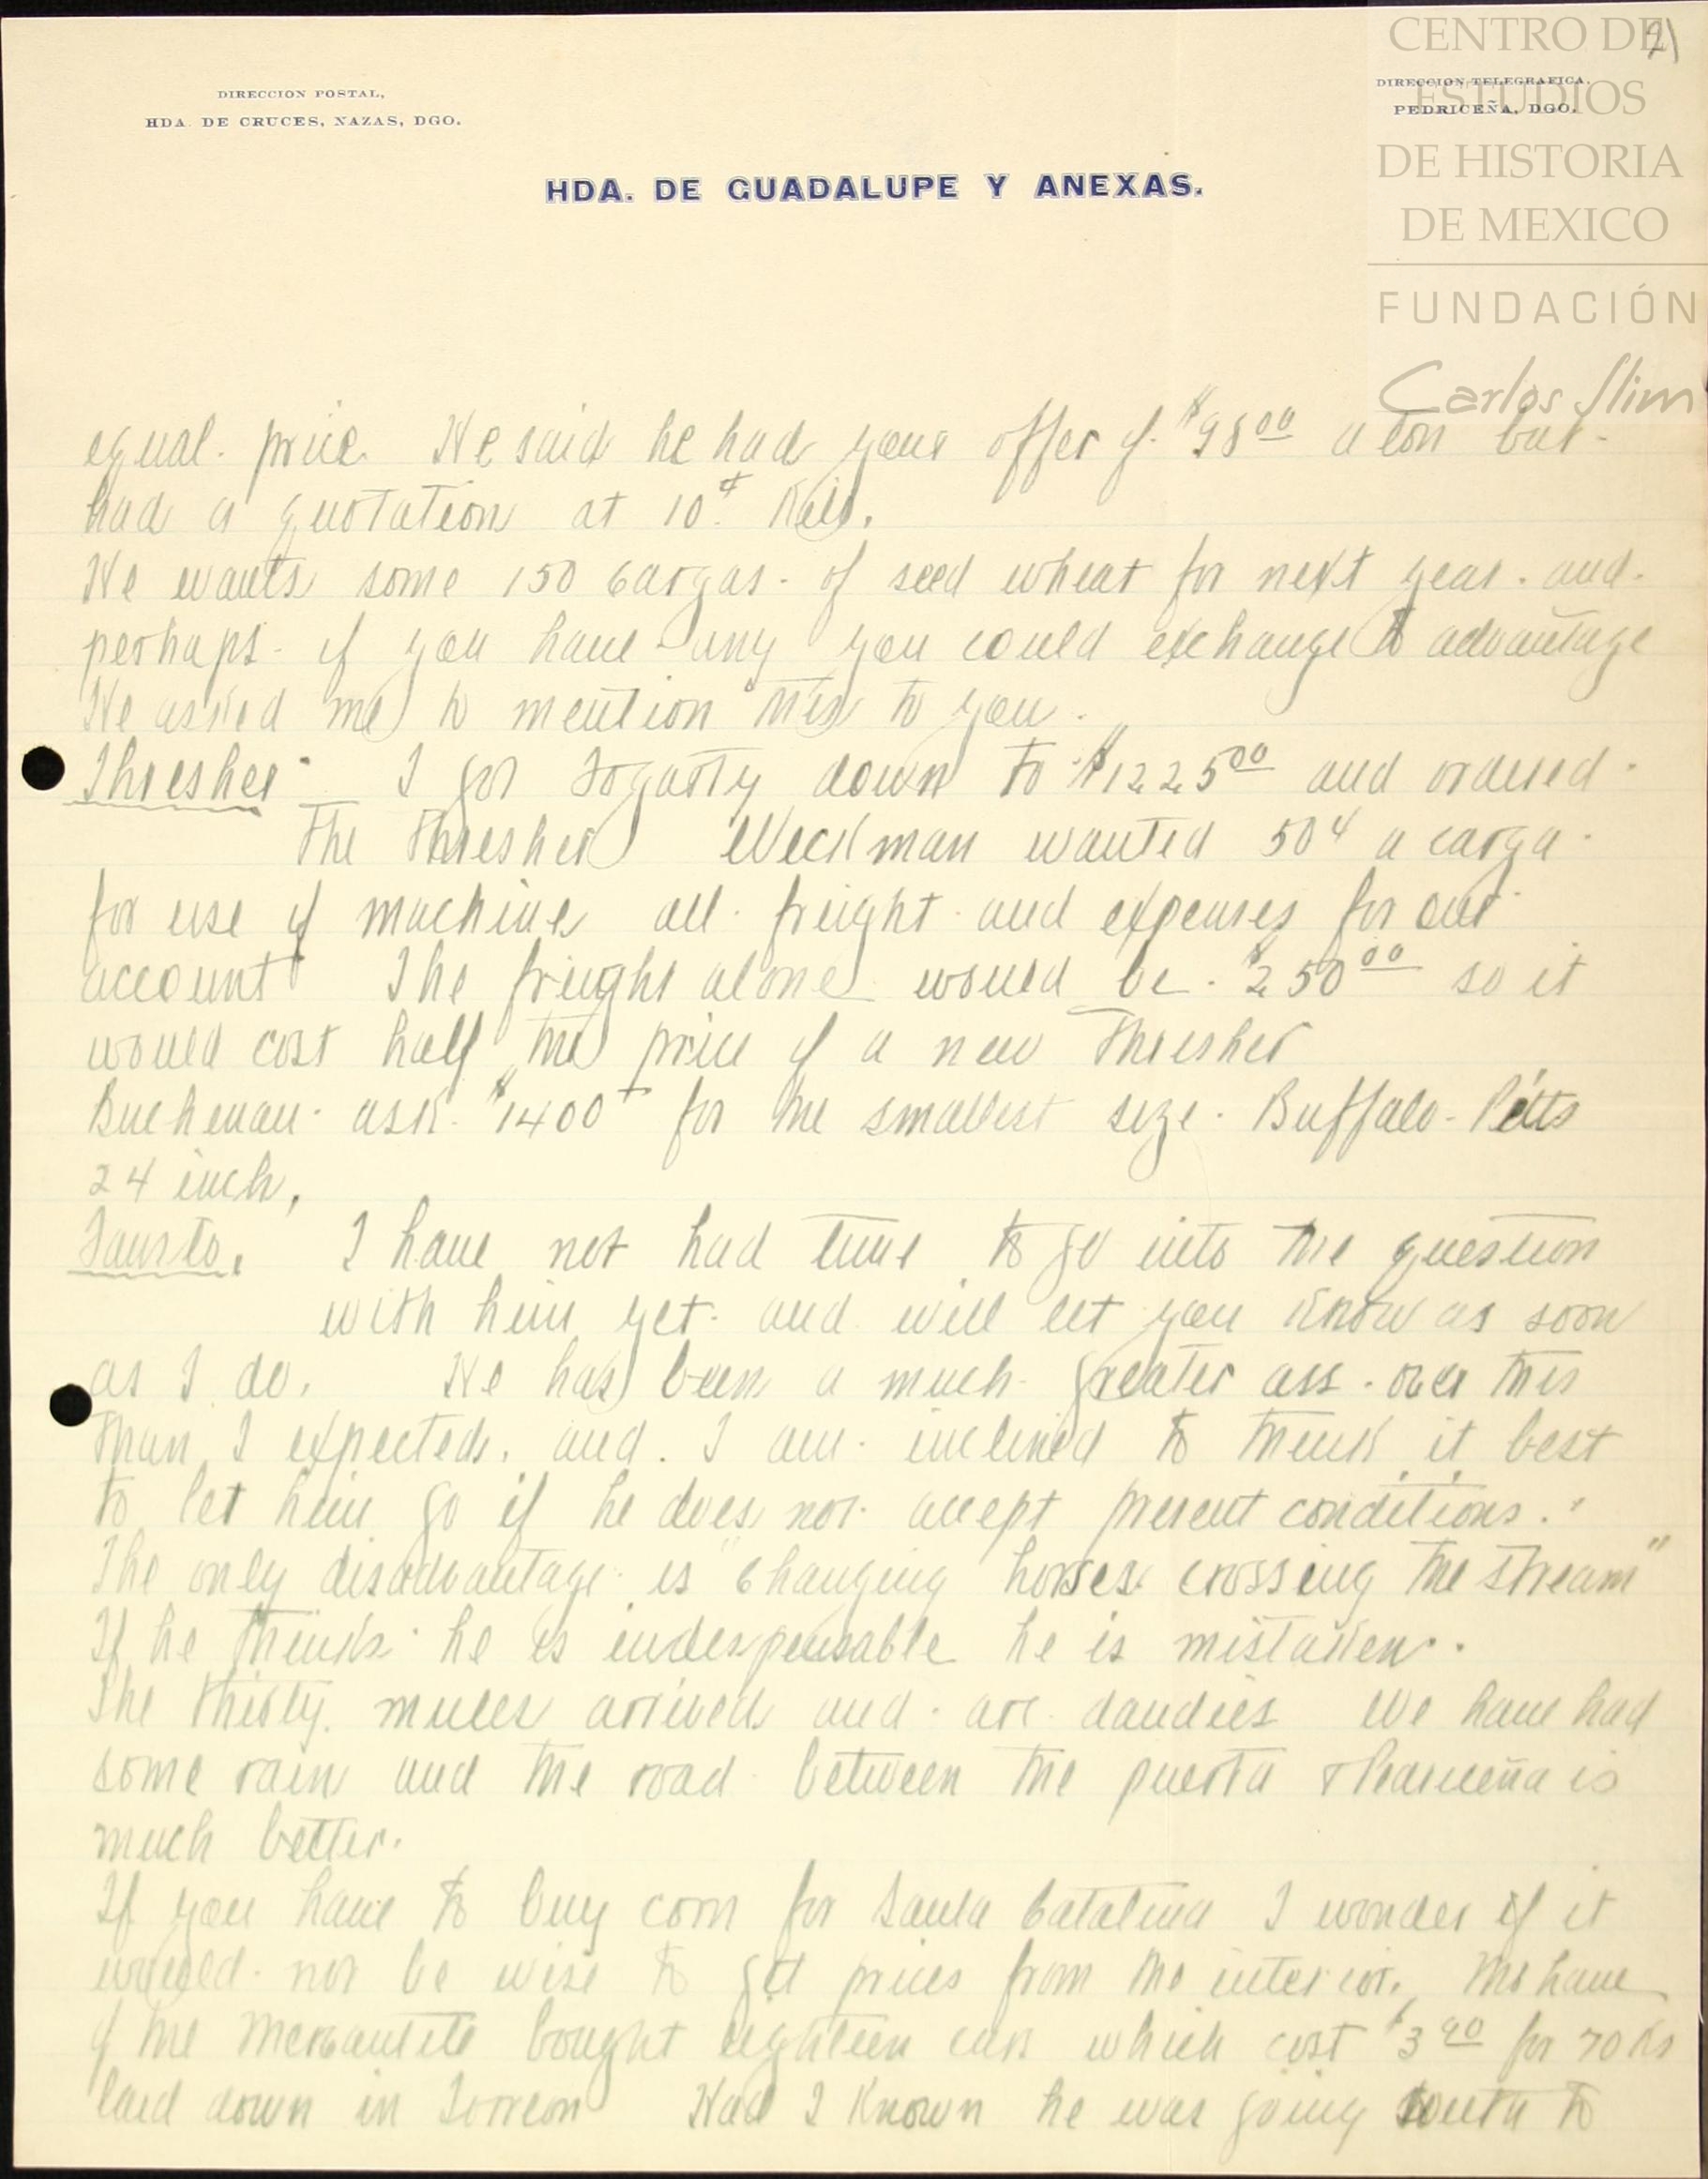 CENTRO DE
ESTUDIOS
DE HISTORIA
DE MEXICO
FUNDACIÓN
Carlos Slim
2)
DIRECCION POSTAL,
HDA. DE CRUCES, NAZAS, DGO.
DIRECCION TELEGRAFICA.
PEDRICEÑA, DGO.
HDA. DE GUADALUPE Y ANEXAS.
equal. price. He said he had your offer of $98.00 a ton but
had a quotation at 10¢ Kilo.
He wants some 150 Cargas. of seed wheat for next year. and.
perhaps. if you have any you could exchange to advantage
He asked me to mention this to you.
Thresher. I got Fogarty down to $1225.00 and ordered.
The Thresher Weckman wanted 50¢ a carga.
for use of machine all. freight. and expenses for our
account The freight alone would be. $250.00 so it
would cost half the price of a new Thresher
Buchenau. ask. $1400 for the smallest size. Buffalo-Pitts
24 inch,
Fausto. I have not had time to go into the question
with him yet. and will let you know as soon
as I do. He has been a much. greater ass. over this
than I expected. and. I am. inclined to think it best
to let him go if he does not accept present conditions.
The only disadvantage. is "changing horses crossing the stream"
If he thinks. he is indespensable he is mistaken.
The thirty. mules arrived and. are dandies We have had
some rain and the road between the puerta & is
much better.
If you have to buy corn for Santa Catalina I wonder if it
would. not be wise to get prices from the interior.
of the Mercantile bought eighteen cars which cost $3.90 for 70 Ks
laid down in Torreon Had I known he was going south to